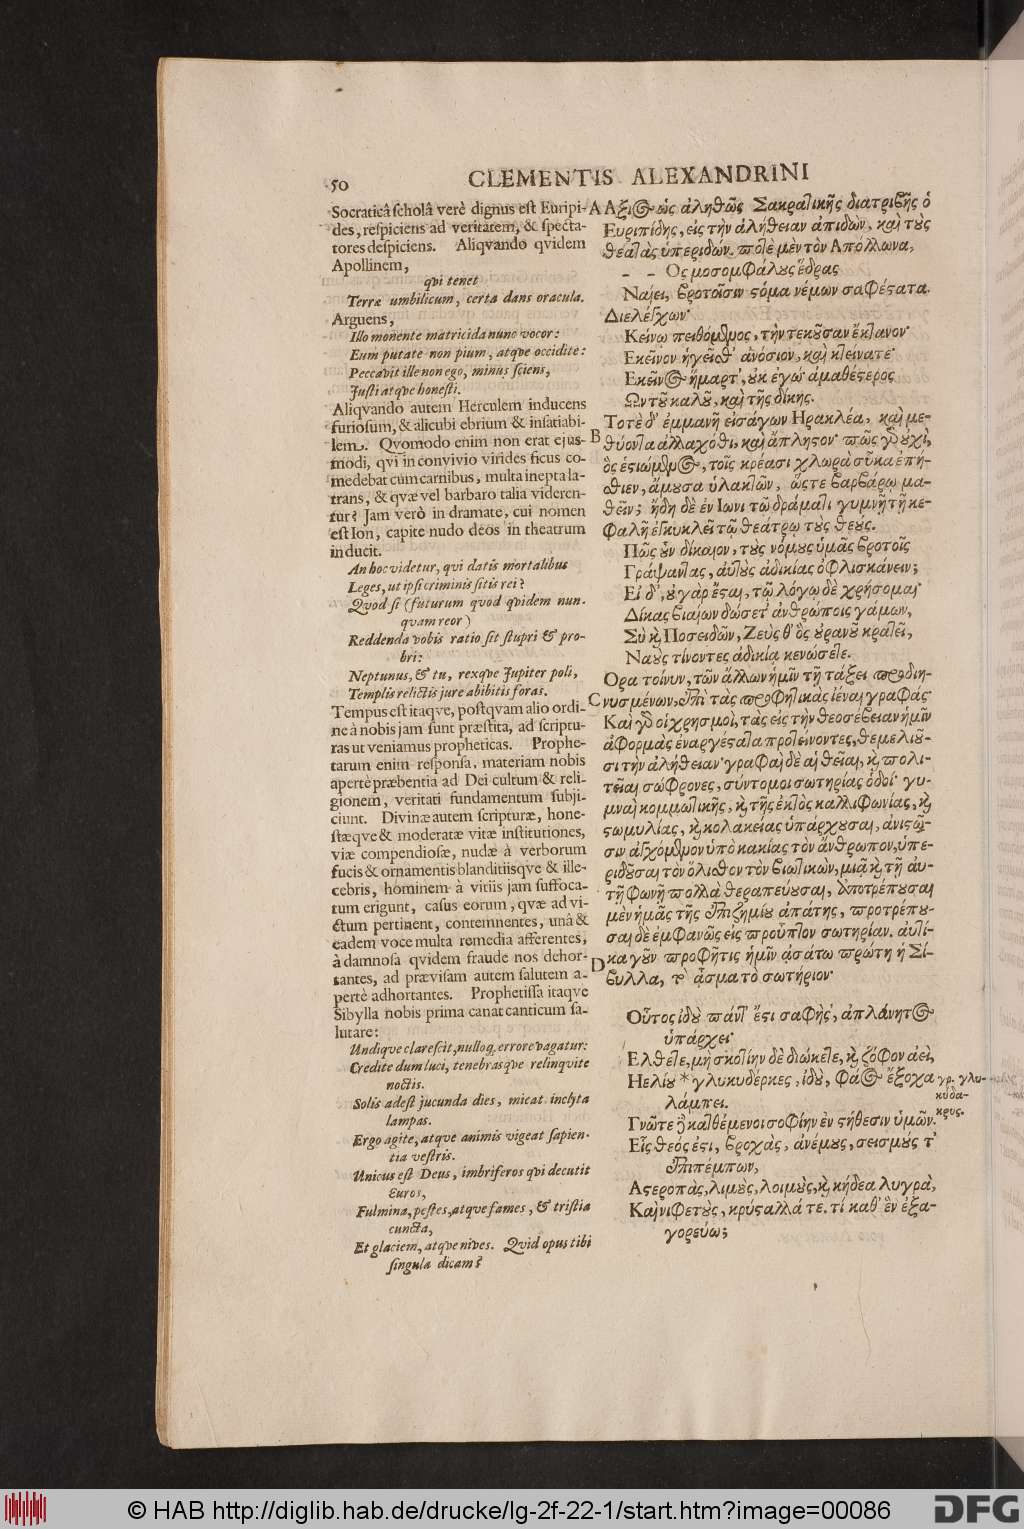 50
CLEMENTIS ALEXANDRINI
Socraticâ scholâ verè dignus est Euripi-
des, respiciens ad veritatem, & specta-
tores despiciens. Aliqvando qvidem
Apollinem,
qvi tenet
Terræ umbilicum, certa dans oracula.
Arguens,
Illo monente matricida nunc vocor:
Eum putate non pium, atqve occidite:
Peccavit ille non ego, minus sciens,
Justi atqve honesti.
Aliqvando autem Herculem inducens
furiosum, & alicubi ebrium & insatiabi-
lem. Qvomodo enim non erat ejus-
modi, qvi in convivio virides ficus co-
medebat cum carnibus, multa inepta la-
trans, & qvæ vel barbaro talia videren-
tur? Jam verò in dramate, cui nomen
est Ion, capite nudo deos in theatrum
inducit.
An hoc videtur, qvi datis mortalibus
Leges, ut ipsi criminis sitis rei?
Qvod si (futurum qvod qvidem nun-
qvam reor)
Reddenda vobis ratio sit stupri & pro-
bri:
Neptunus, & tu, rexqve Jupiter poli,
Templis relictis jure abibitis foras.
Tempus est itaqve, postqvam alio ordi-
ne à nobis jam sunt præstita, ad scriptu-
ras ut veniamus propheticas. Prophe-
tarum enim responsa, materiam nobis
apertè præbentia ad Dei cultum & reli-
gionem, veritati fundamentum subji-
ciunt. Divinæ autem scripturæ, hone-
stæqve & moderatæ vitæ institutiones,
viæ compendiosæ, nudæ à verborum
fucis & ornamentis blanditiisqve & ille-
cebris, hominem à vitiis jam suffoca-
tum erigunt, casus eorum, qvæ ad vi-
ctum pertinent, contemnentes, unâ &
eadem voce multa remedia afferentes,
à damnosa qvidem fraude nos dehor-
tantes, ad prævisam autem salutem a-
pertè adhortantes. Prophetissa itaqve
Sibylla nobis prima canat canticum sa-
lutare:
Undique clarescit, nulloq. errore vagatur:
Credite dum luci, tenebrasqve relinqvite
noctis.
Solis adest jucunda dies, micat inclyta
lampas.
Ergo agite, atqve animis vigeat sapien-
tia vestris.
Unicus est Deus, imbriferos qvi decutit
Euros,
Fulmina, pestes, atqve fames, & tristia
cuncta,
Et glaciem, atqve nives. Qvid opus tibi
singula dicam?
A Αξι<unk>ος ὡς ἀληθῶς Σωκρατικῆς διατριβῆς ὁ
Ευριπίδης, εἰς τὴν ἀλήθειαν ἀπιδὼν, καὶ τοὺς
θεατὰς ὑπεριδών. ποτὲ μὲν τὸν Απόλλωνα,
– – Ος μεσομφάλους ἕδρας
Ναίει, βροτοῖσιν στόμα νέμων σαφέστατα.
Διελέγχων·
Κείνῳ πειθόμενος, τὴν τεκοῦσαν ἔκτανον·
Εκεῖνον ἡγεῖσθ᾽ ἀνόσιον, καὶ κτείνατε·
Εκεῖνος ἥμαρτ᾽, οὐκ ἐγώ· ἀμαθέστερος
Ων τοῦ καλοῦ, καὶ τῆς δίκης.
Τοτὲ δ᾽ ἐμμανῆ εἰσάγων Ηρακλέα, καὶ με-
B θύοντα ἀλλαχόθι, καὶ ἄπληστον· πῶς γὰρ οὐχὶ,
ὃς ἑστιώμενος, τοῖς κρέασι χλωρὰ σῦκα ἐπή-
σθιεν, ἄμουσα ὑλακτῶν, ὥστε βαρβάρῳ μα-
θεῖν; ἤδη δὲ ἐν Ιωνι τῷ δράματι γυμνῇ τῇ κε-
φαλῇ ἐγκυκλεῖ τῷ θεάτρῳ τοὺς θεούς.
Πῶς οὖν δίκαιον, τοὺς νόμους ὑμᾶς βροτοῖς
Γράψαντας, αὐτοὺς ἀδικίας ὀφλισκάνειν;
Εἰ δ᾽, οὐ γὰρ ἔσται, τῷ λόγῳ δὲ χρήσομαι·
Δίκας βιαίων δώσετ᾽ ἀνθρώποις γάμων,
Σὺ καὶ Ποσειδῶν, Ζεὺς θ᾽ ὃς οὐρανοῦ κρατεῖ,
Ναοὺς τίνοντες ἀδικίᾳ κενώσετε.
Ορα τοίνυν, τῶν ἄλλων ἡμῖν τῇ τάξει προδιη-
C νυσμένων, ἐπὶ τὰς προφητικὰς ἰέναι γραφάς·
Καὶ γὰρ οἱ χρησμοὶ, τὰς εἰς τὴν θεοσέβειαν ἡμῖν
ἀφορμὰς ἐναργέστατα προτείνοντες, θεμελιοῦ-
σι τὴν ἀλήθειαν· γραφαὶ δὲ αἱ θεῖαι, καὶ πολι-
τεῖαι σώφρονες, σύντομοι σωτηρίας ὁδοί· γυ-
μναὶ κομμωτικῆς, καὶ τῆς ἐκτὸς καλλιφωνίας, καὶ
στωμυλίας, καὶ κολακείας ὑπάρχουσαι, ἀνιστῶ-
σιν ἀγχόμενον ὑπὸ κακίας τὸν ἄνθρωπον, ὑπε-
ριδοῦσαι τὸν ὄλισθον τὸν βιωτικὸν, μιᾷ καὶ τῇ αὐ-
τῇ φωνῇ πολλὰ θεραπεύουσαι, ἀποτρέπουσαι
μὲν ἡμᾶς τῆς ἐπιζημίου ἀπάτης, προτρέπου-
σαι δὲ ἐμφανῶς εἰς προῦπτον σωτηρίαν. αὐτί-
D κα γοῦν προφῆτις ἡμῖν ᾀσάτω πρώτη ἡ Σί-
βυλλα, τὸ ᾆσμα τὸ σωτήριον·
Οὗτος ἰδοὺ πάντ᾽ ἔστι σαφὴς, ἀπλάνητος
ὑπάρχει·
Ελθετε, μὴ σκοτίην δὲ διώκετε, καὶ ζόφον ἀεὶ,
Ηελίου * γλυκυδέρκες, ἰδοὺ, φάος ἔξοχα
λάμπει.
γρ. γλυ-
κυδα-
κρυς.
Γνῶτε δὲ κατθέμενοι σοφίην ἐν στήθεσιν ὑμῶν.
Εἷς θεός ἐστι, βροχὰς, ἀνέμους, σεισμούς τ᾽
ἐπιπέμπων,
Αστεροπὰς, λιμοὺς, λοιμοὺς, καὶ κήδεα λυγρὰ,
Καὶ νιφετοὺς, κρύσταλλά τε. τί καθ᾽ ἓν ἐξα-
γορεύω;
© HAB http://diglib.hab.de/drucke/lg-2f-22-1/start.htm?image=00086
DFG